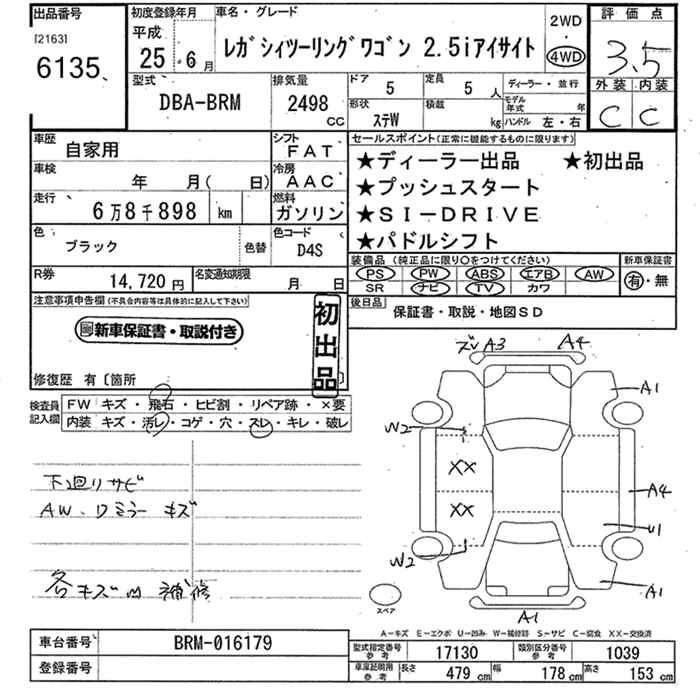 出品番号
[2163]
6135
初度登録年月
平成
25年6月
車名・グレード
レガシィツーリングワゴン 2.5iアイサイト
2WD
・
4WD
評価点
3.5
外装 内装
C C
型式
DBA-BRM
排気量
2498
CC
ドア
5
定員
5人
形状
ステW
積載
kg
ディーラー・並行
モデル年式 年
ハンドル 左・右
車歴
自家用
シフト
FAT
車検
年 月( 日)
冷房
AAC
走行
6万8千898 km
燃料
ガソリン
色
ブラック
色替
色コード
D4S
R券
14,720円
名変通知期限
月 日
セールスポイント(正常に機能するものに限ります)
★ディーラー出品 ★初出品
★プッシュスタート
★SI-DRIVE
★パドルシフト
装備品 (純正品に限り○をつけてください)
PS PW ABS エアB AW
SR ナビ TV カワ
新車保証書
有・無
後日品
保証書・取説・地図SD
注意事項申告欄(不具合内容等は具体的に記入して下さい)
新車保証書・取説付き
初出品
修復歴 有〔箇所 〕
検査員記入欄
FW キズ・飛石・ヒビ割・リペア跡・×要
内装 キズ・汚レ・コゲ・穴・スレ・キレ・破レ
下廻りサビ
AW、ワミラー キズ
各キズ凹 補修
ズレ A3 A4
A1
W2
XX
A4
XX
U1
W2
A1
A1
スペア
A-キズ E-エクボ U-凹み W-補修跡 S-サビ C-腐食 XX-交換済
車台番号
BRM-016179
登録番号
型式指定番号参考
17130
類別区分番号参考
1039
車庫証明用参考
長さ 479 cm 幅 178 cm 高さ 153 cm